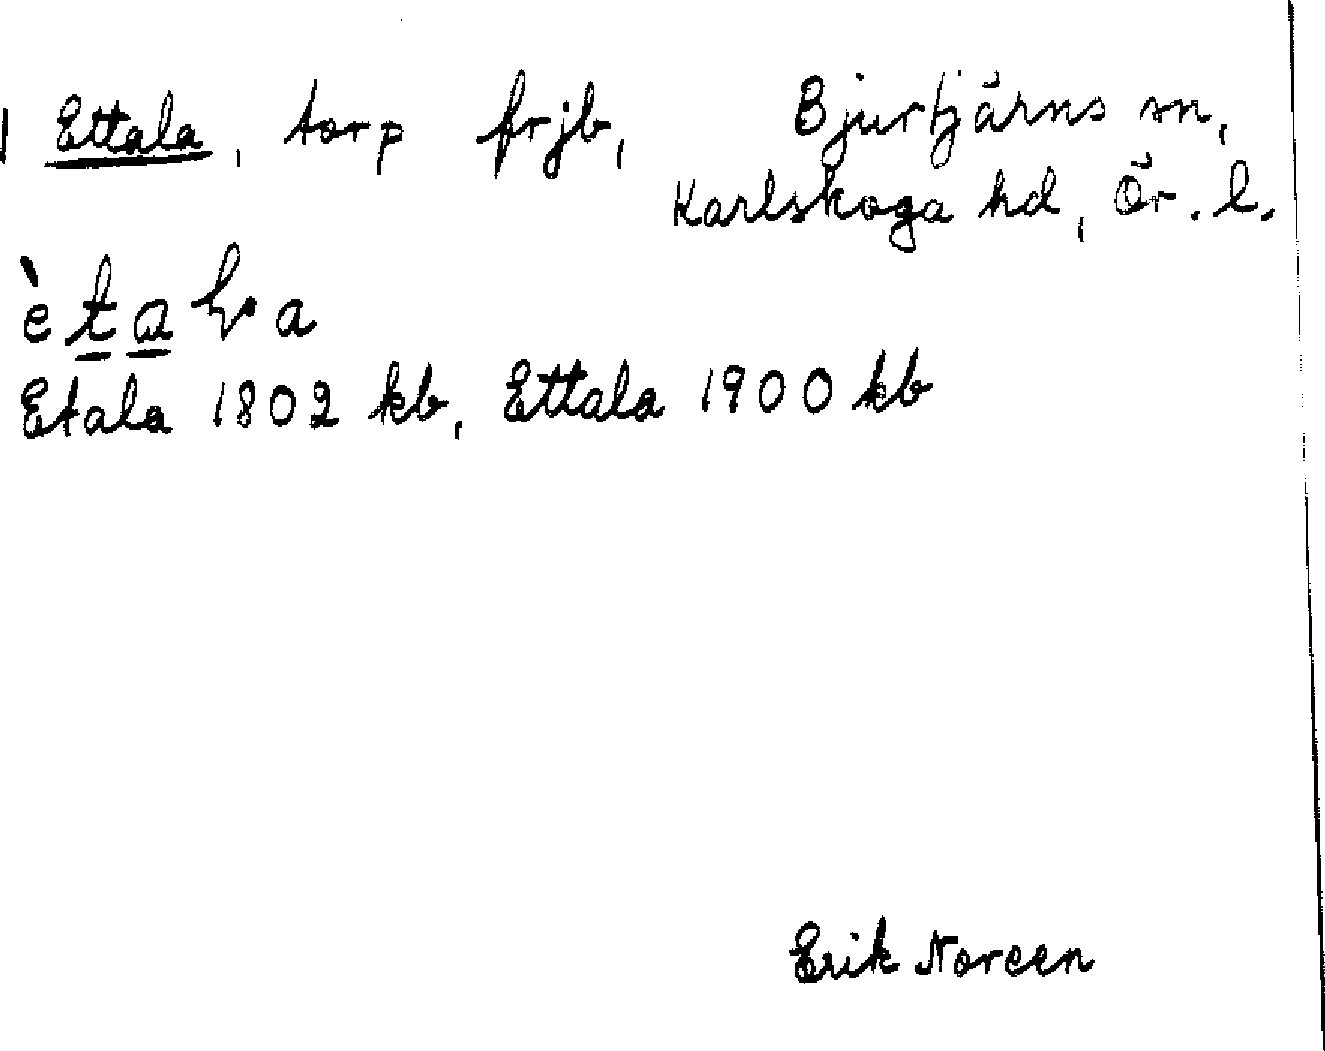 Ettala, torp frjb, Bjurtjärns sn,
Karlskoga hd, Ör. l.
Etala 1802 kb, Ettala 1900 kb
Erik Noreen